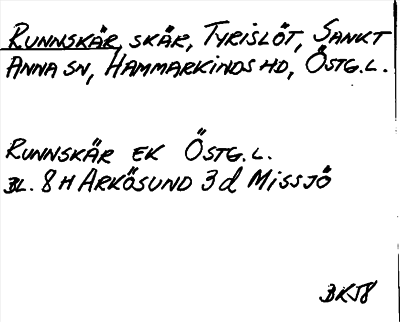 RUNNSKÄR, SKÄR, TYRISLÖT, SANKT
ANNA SN, HAMMARKINDS HD, ÖSTG.L.
RUNNSKÄR EK ÖSTG.L.
BL. 8 H ARKÖSUND 3 d MISSJÖ
BK58